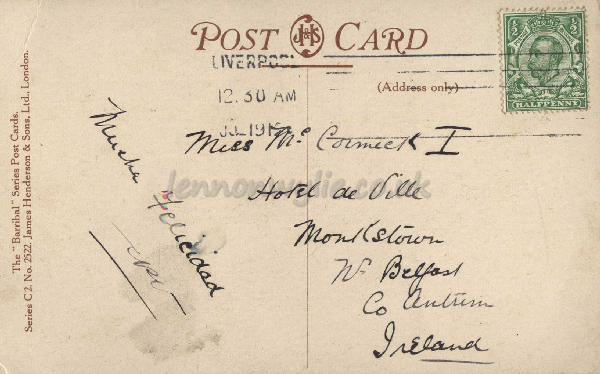 POST JH&S CARD
LIVERPOOL
12.30 AM
JL 19
(Address only)
½ ½
HALFPENNY
Miss Mc Cormick I
Hotel de Ville
Monkstown
Nr Belfast
Co Antrim
Ireland
Mucha Felicidad
The "Barribal" Series Post Cards.
Series C 2, No. 2522. James Henderson & Sons, Ltd., London.
lennonwylie.co.uk